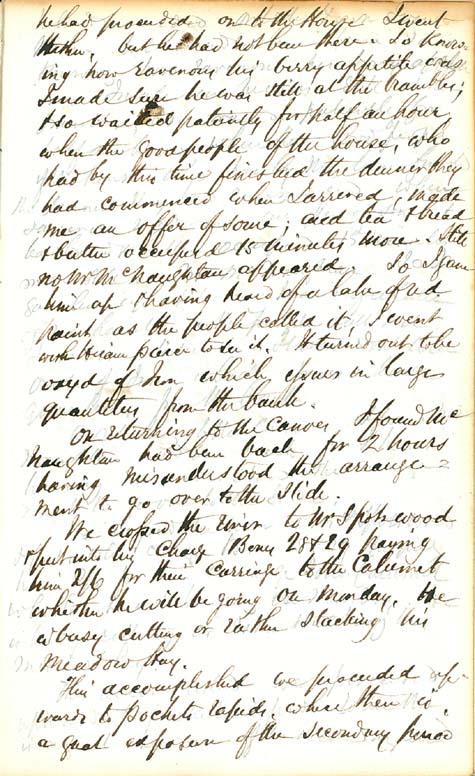 he had proceeded on to the House I went
thither, but he had not been there. So know-
ing how ravenous his berry appetite was
I made sure he was still at the brambles;
& so waited patiently for half an hour,
when the good people of the house, who
had by this time finished the dinner they
had commenced when I arrived, made
me an offer of some; and tea & bread
& butter occupied 15 minutes more. Still
no Mr McNaughtan appeared. So I gave
him up & having heard of a lake of red
paint as the people called it, I went
with Hiram to see it. It turned out to be
oxyd of Iron which issues in large
quantities from the bank.
On returning to the canoes I found Mc
Naughtan had been back for 2 hours
having misunderstood the arrange=
ment to go over to the slide.
We crossed the river to Mr Spotswood
& put into his charge Boxes 28 & 29 paying
him 2/6 for their carriage to the Calumet
whither he will be going on Monday. He
is busy cutting or rather stacking his
Meadow Hay.
This accomplished we proceeded up-
wards to rapids, where there is
a great exposure of the secondary